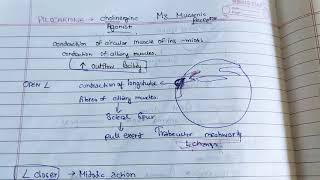 PILOCARPINE → cholinergic M3 Muscarinic
agonist Receptor
contraction of circular muscle of iris - miosis
contraction of ciliary muscles.
↑ outflow facility
OPEN L contraction of longitudinal
fibres of ciliary muscles.
↓
Scleral Spur
↓
pull exert Trabecular meshwork
& changes
L closer → Miotic action